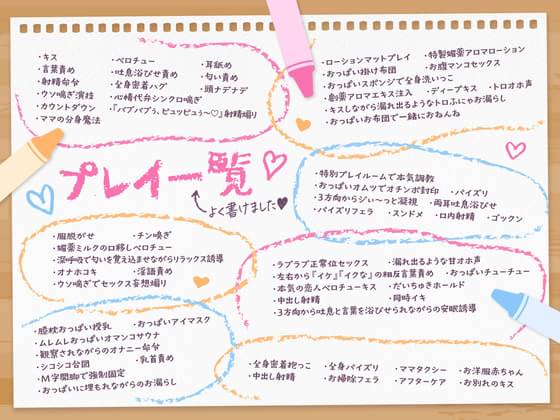 ・キス
・ベロチュー
・耳舐め
・言葉責め
・吐息浴びせ責め
・匂い責め
・射精命令
・全身密着ハグ
・頭ナデナデ
・ウソ喘ぎ演技
・心機代弁シンクロ喘ぎ
・カウントダウン
・「パブパブぅ、ピュッピュぅ～♡」射精煽り
・ママの分身魔法
・ローションマットプレイ
・特製媚薬アロマローション
・おっぱい掛け布団
・お腹マンコセックス
・おっぱいスポンジで全身洗いっこ
・創薬アロマエキス注入
・ディープキス
・トロオホ声
・キスしながら漏れ出るようなトロふにゃお漏らし
・おっぱいお布団で一緒におねんね
プレイ一覧
よく書けました
・特別プレイルームで本気調教
・おっぱいオムツでオチンポ封印
・パイズリ
・3方向からジぃ～っと凝視
・両耳吐息浴びせ
・パイズリフェラ
・スンドメ
・口内射精
・ゴックン
・服脱がせ
・チン嗅ぎ
・媚薬ミルクの口移しベロチュー
・深呼吸で匂いを覚え込ませながらリラックス誘導
・オナホコキ
・淫語責め
・ウソ喘ぎでセックス妄想煽り
・ラブラブ正常位セックス
・漏れ出るような甘オホ声
・左右から『イケ』『イクな』の相反言葉責め
・おっぱいチューチュー
・本気の恋人ベロチューキス
・だいちゅきホールド
・中出し射精
・同時イキ
・3方向から吐息と言葉を浴びせられながらの安眠誘導
・膝枕おっぱい授乳
・おっぱいアイマスク
・ムレムレおっぱいオマンコサウナ
・観察されながらのオナニー命令
・シコシコ合図
・乳首責め
・M字開脚で強制固定
・おっぱいに埋もれながらのお漏らし
・全身密着抱っこ
・全身パイズリ
・ママタクシー
・お洋服赤ちゃん
・中出し射精
・お掃除フェラ
・アフターケア
・お別れのキス